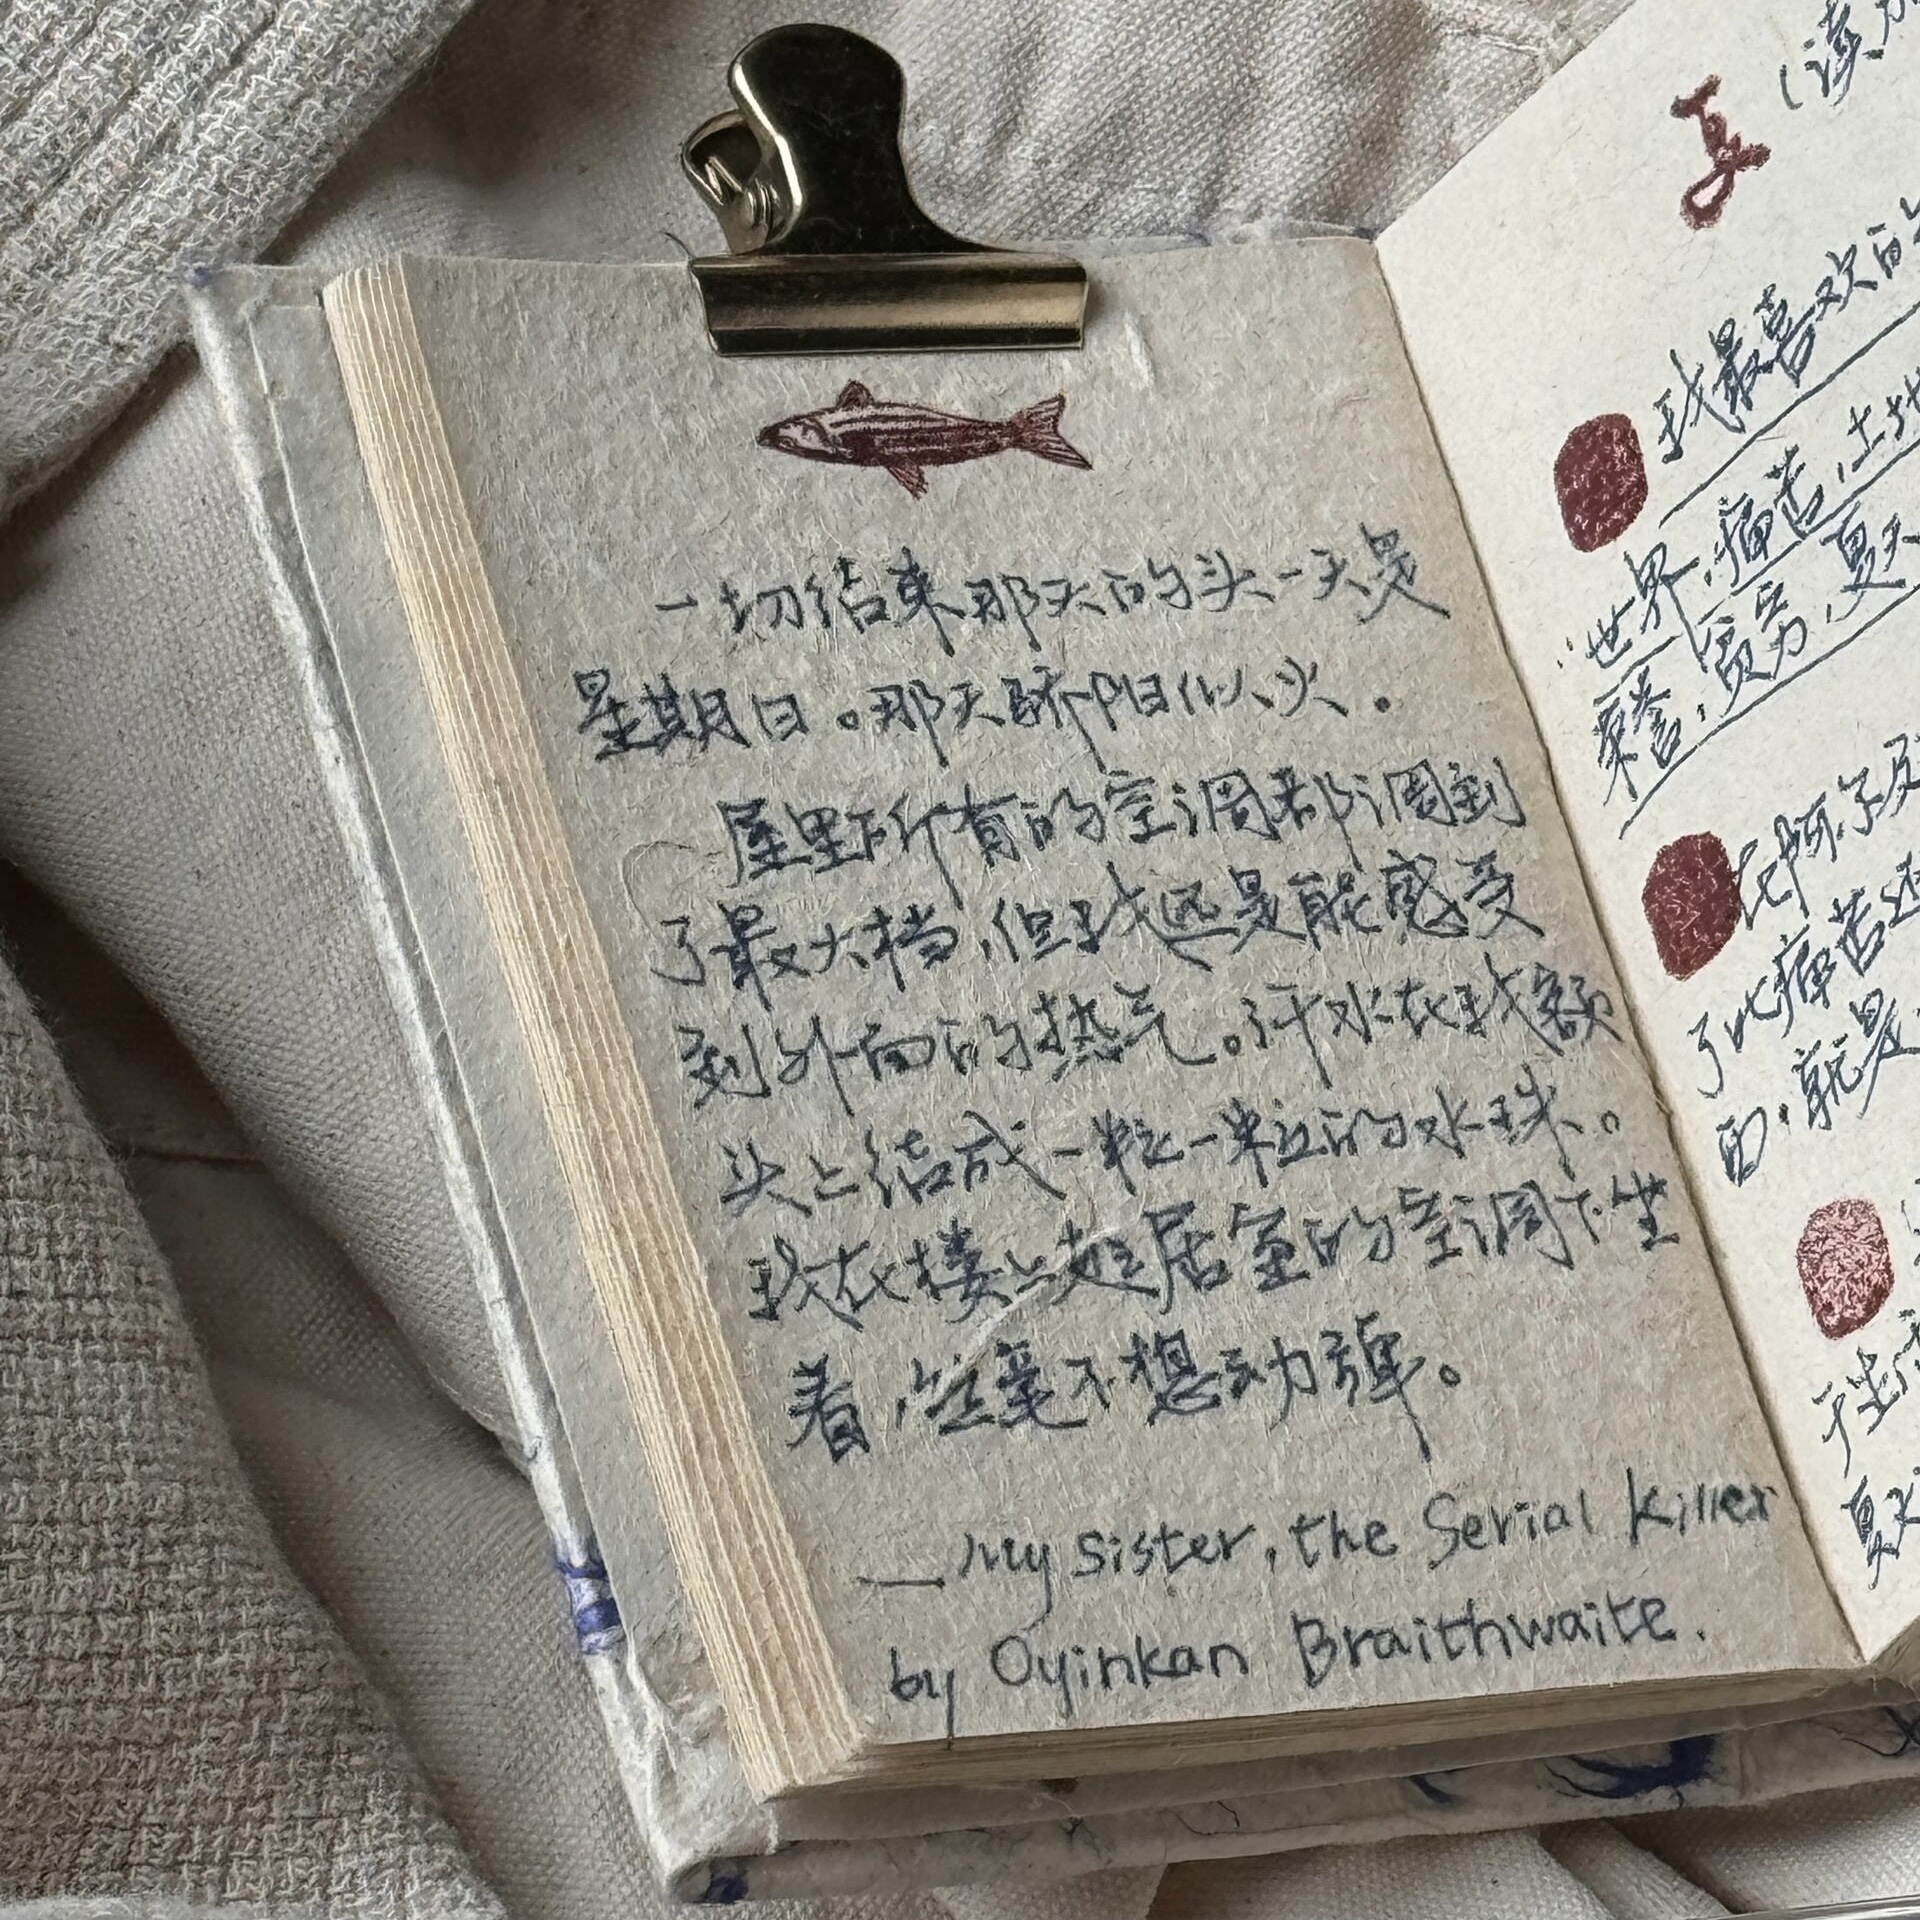 一切结束那天的头一天是
星期日。那天骄阳似火。
屋里所有的空调都调到
了最大档，但我还是能感受
到外面的热气。汗水在我额
头上结成一粒一粒的水珠。
我在楼上起居室的空调下坐
着，丝毫不想动弹。
—My sister, the Serial Killer
by Oyinkan Braithwaite.
夏（读加
我最喜欢的
“世界，痛苦，土地
荣誉，贫穷，夏天
在阿尔及
了比痛苦还
面，就是
于坐
夏天